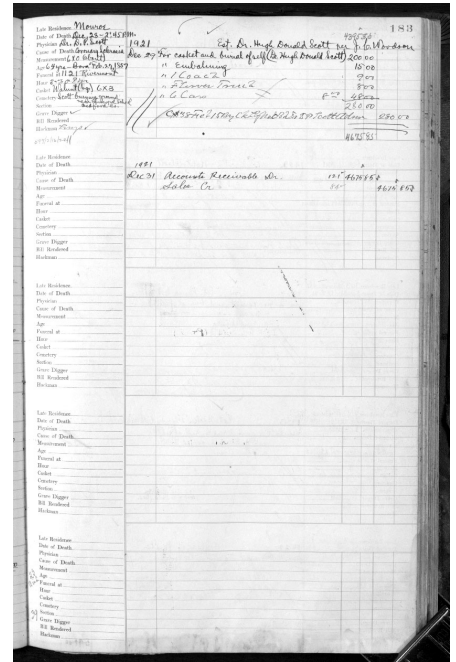 183
Late Residence Monroe
Date of Death Dec. 28 - 2:45 P.M.
Physician Dr. D.P. Scott
Cause of Death
Measurement
Age 64 yrs - Born Feb. 27, 1857
Funeral at 1121 Rivermont
Hour
Casket Walnut 6X3
Cemetery Scott burying ground
Section Bedford Co.
Grave Digger
Bill Rendered
Hackman
1921 Est. Dr. Hugh Donald Scott per J. C. Woodson
Dec 29 For casket and burial of self (Dr. Hugh Donald Scott) 200.00
" Embalming 15.00
" 1 Coach 9.00
" Flower 8.00
" 6 Cars 8.00 48.00
280.00
280.00
Late Residence
Date of Death
Physician
Cause of Death
Measurement
Age
Funeral at
Hour
Casket
Cemetery
Section
Grave Digger
Bill Rendered
Hackman
1921
Dec 31 Accounts Receivable Dr.
Sales Cr.
Late Residence
Date of Death
Physician
Cause of Death
Measurement
Age
Funeral at
Hour
Casket
Cemetery
Section
Grave Digger
Bill Rendered
Hackman
Late Residence
Date of Death
Physician
Cause of Death
Measurement
Age
Funeral at
Hour
Casket
Cemetery
Section
Grave Digger
Bill Rendered
Hackman
Late Residence
Date of Death
Physician
Cause of Death
Measurement
Age
Funeral at
Hour
Casket
Cemetery
Section
Grave Digger
Bill Rendered
Hackman